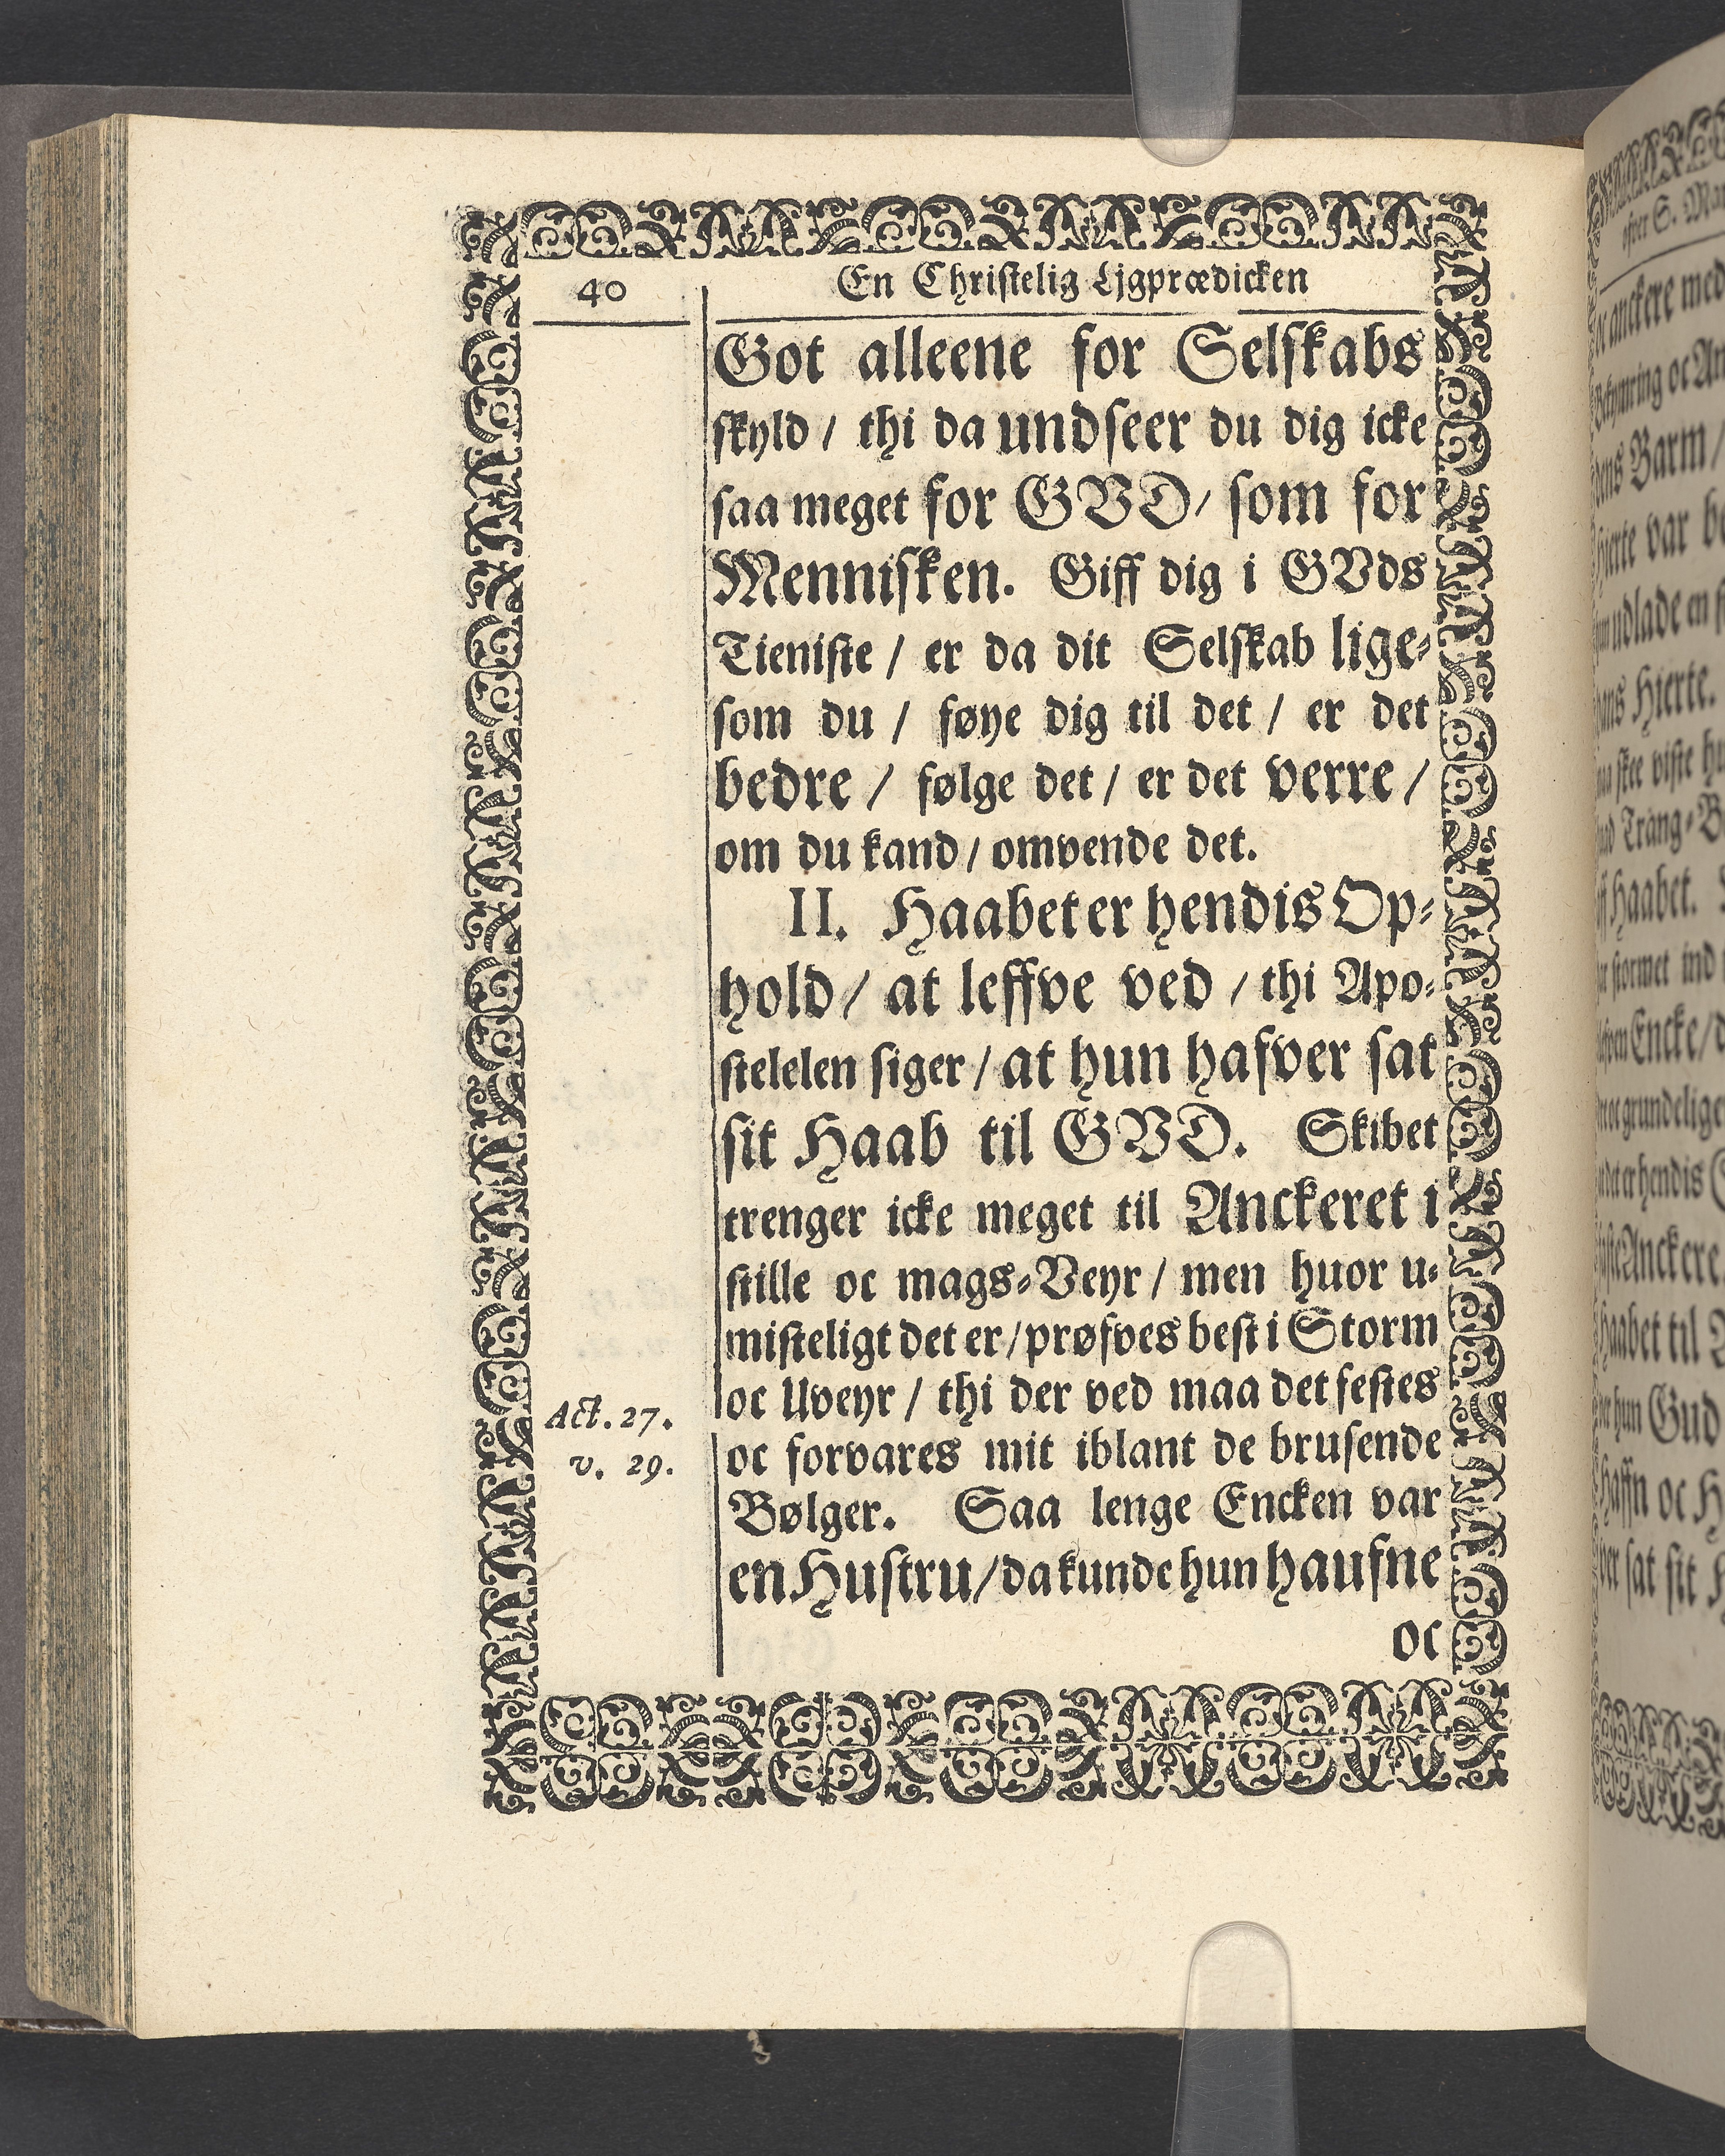 40
En Christelig Ljgprædicken
Got alleene for Selskabs
skyld / thi da undseer du dig icke
saa meget for GVD / som for
Mennisken. Giff dig i GVds
Tieniste / er da dit Selskab lige-
som du / føye dig til det / er det
bedre / følge det / er det verre /
om du kand / omvende det.
II. Haabet er hendis Op-
hold / at leffve ved / thi Apo-
stelelen siger / at hun hafver sat
sit Haab til GVD. Skibet
trenger icke meget til Anckeret i
stille oc mags-Veyr / men huor u-
misteligt det er / prøfves best i Storm
oc Uveyr / thi der ved maa det festes
Act. 27.
v. 29.
oc forvares mit iblant de brusende
Bølger. Saa lenge Encken var
en Hustru / da kunde hun haufne
oc